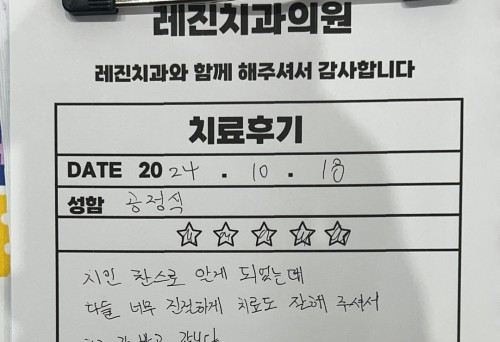 레진치과의원
레진치과와 함께 해주셔서 감사합니다
치료후기
DATE 2024 . 10 . 18
성함 공정식
지인 찬스로 알게 되었는데
다들 너무 친절하게 치료도 잘해 주셔서